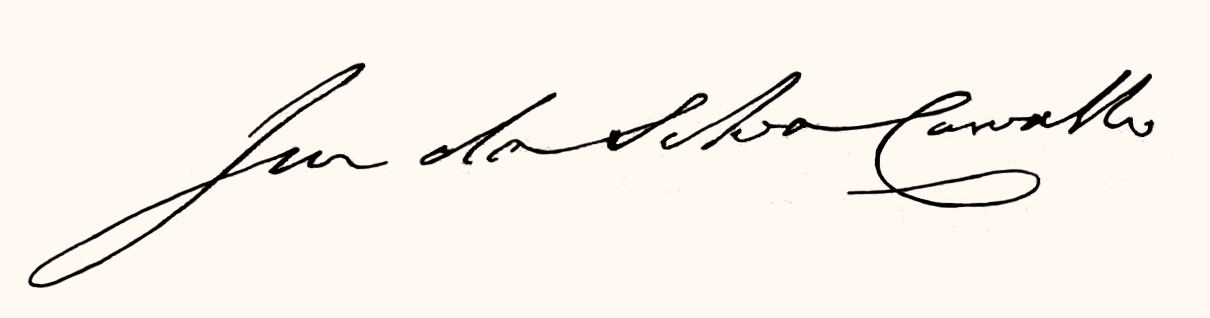 da Silva Carvalho